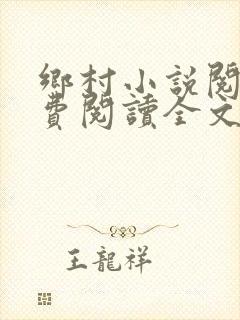 鄉村小說閱
費閱讀全文
王龍祥